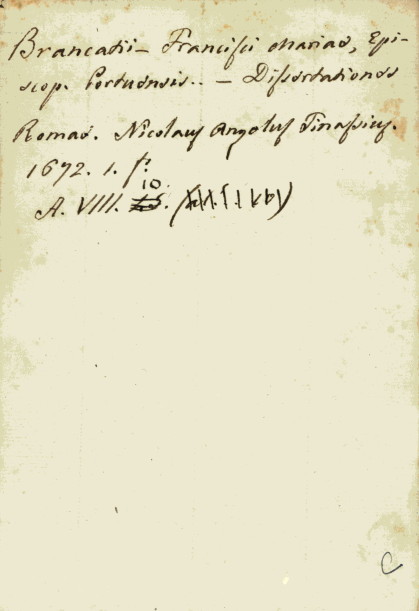 Brancatii – Francisci Mariae, Epi-
scop. Portuensis.. – Dissertationes
Romae. Nicolaus Angelus Tinassius.
1672. 1. f.
10.
A. VIII.
C